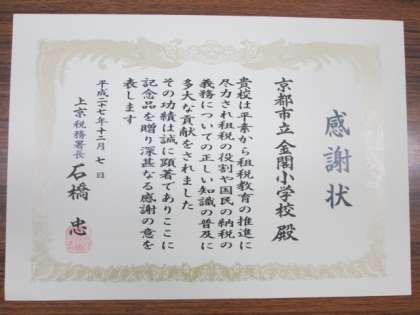 感謝状
京都市立 金閣小学校 殿
貴校は平素から租税教育の推進に
尽力され租税の役割や国民の納税の
義務についての正しい知識の普及に
多大な貢献をされました
その功績は誠に顕著でありここに
記念品を贈り深甚なる感謝の意を
表します
平成二十七年十二月七日
上京税務署長 石橋 忠